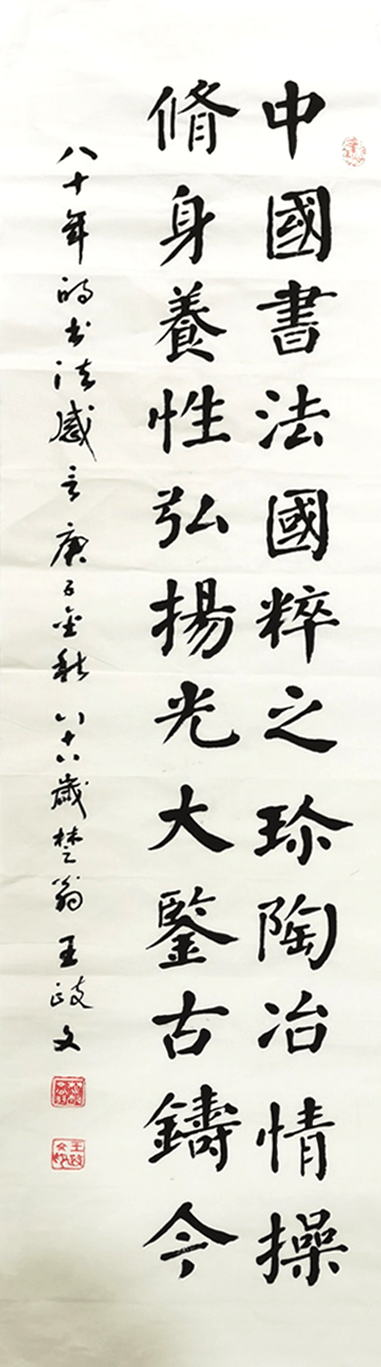 中國書法國粹之珎陶冶情操
脩身養性弘揚光大鑒古鑄今
八十年的书法感言 庚子金秋 八十六歲楚翁 王政文
王政文印